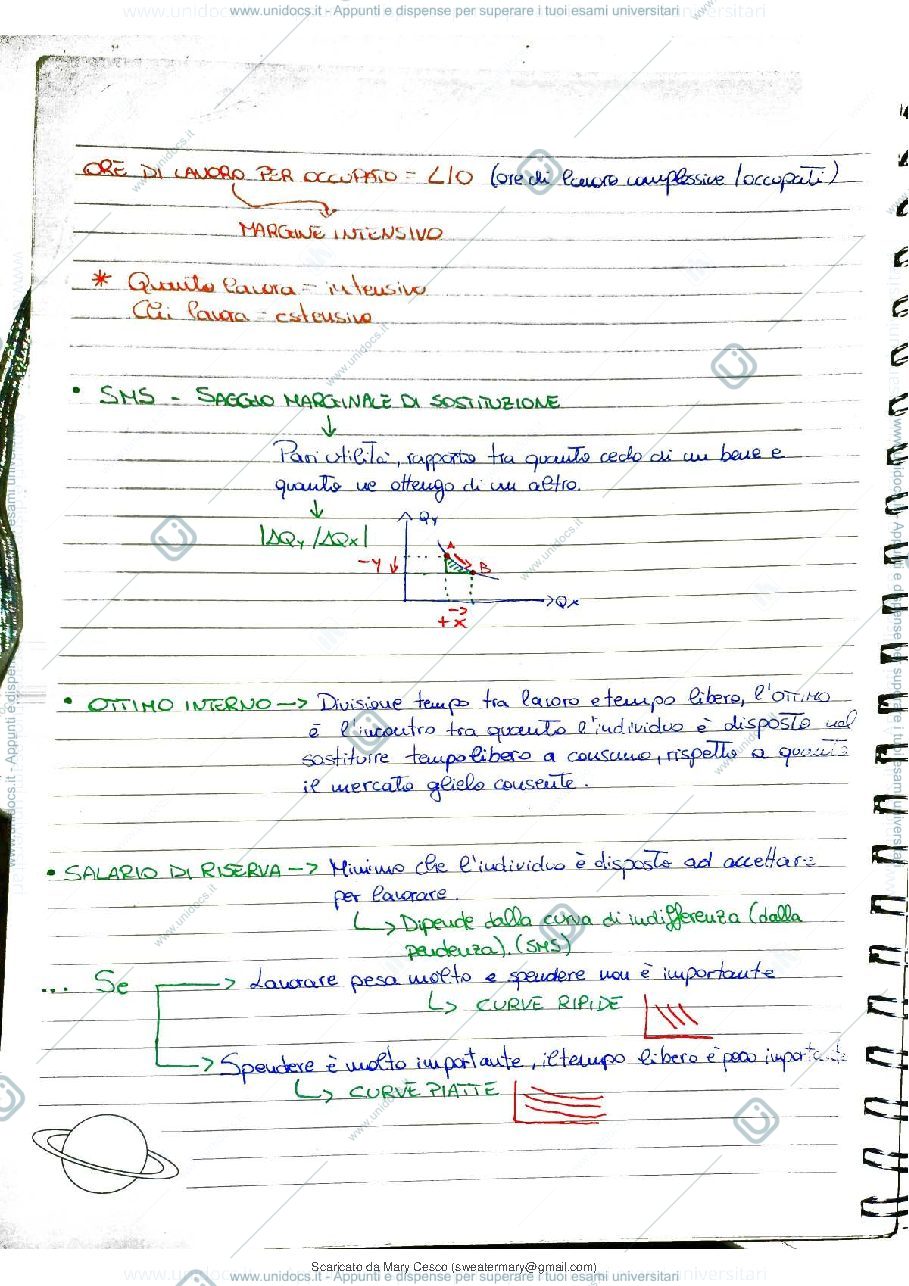 www.unidocs.it - Appunti e dispense per superare i tuoi esami universitari
ORE DI LAVORO PER OCCUPATO = L/O (ore di lavoro complessive / occupati)
MARGINE INTENSIVO
* Quanto lavora = intensivo
Chi lavora = estensivo
• SMS - SAGGIO MARGINALE DI SOSTITUZIONE
↓
Pari utilità, rapporto tra quanto cedo di un bene e
quanto ne ottengo di un altro.
↓
|ΔQy/ΔQx|
Qy
A
-Y ↓
B
->Qx
->
+ x
• OTTIMO INTERNO -> Divisione tempo tra lavoro e tempo libero, l'OTTIMO
è l'incontro tra quanto l'individuo è disposto nel
sostituire tempo libero a consumo, rispetto a quanto
il mercato glielo consente.
• SALARIO DI RISERVA -> Minimo che l'individuo è disposto ad accettare
per lavorare.
Dipende dalla curva di indifferenza (dalla
pendenza). (SMS)
... Se
Lavorare pesa molto e spendere non è importante
CURVE RIPIDE
Spendere è molto importante, il tempo libero è poco importante
CURVE PIATTE
Scaricato da Mary Cesco (sweatermary@gmail.com)
www.unidocs.it - Appunti e dispense per superare i tuoi esami universitari